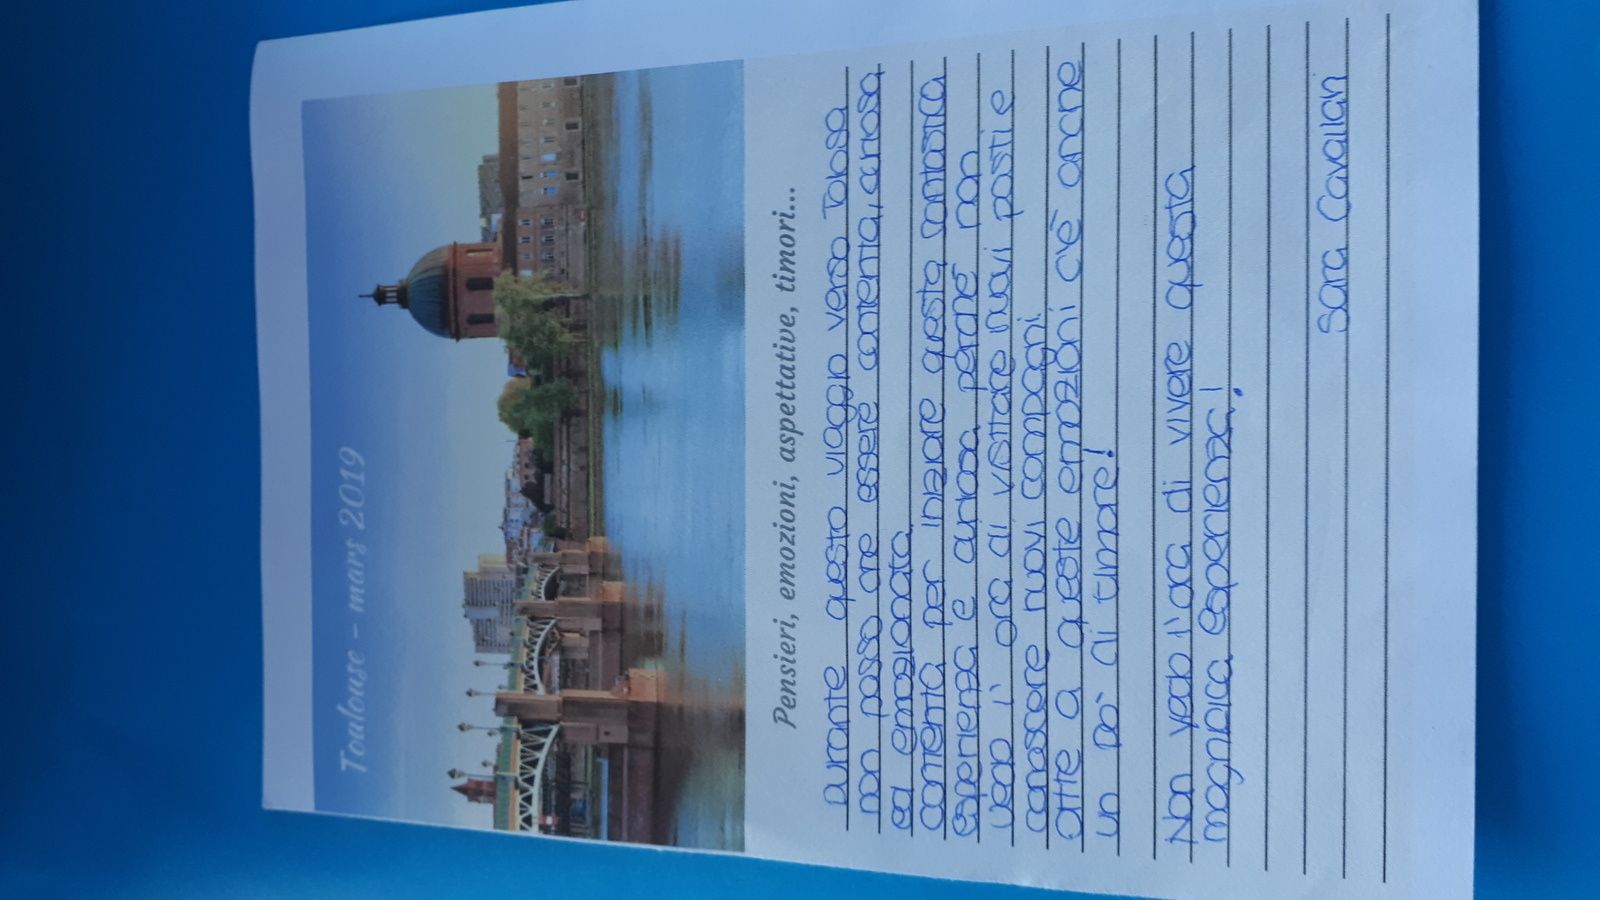 Toulouse - mars 2019
Pensieri, emozioni, aspettative, timori...
Durante questo viaggio verso Tolosa
non posso che essere contenta, curiosa
ed emozionata.
Contenta per iniziare questa fantastica
esperienza e curiosa perché non
vedo l'ora di visitare nuovi posti e
conoscere nuovi compagni.
Oltre a queste emozioni c'è anche
un po' di timore!
Non vedo l'ora di vivere questa
magnifica esperienza!
Sara Cavallan